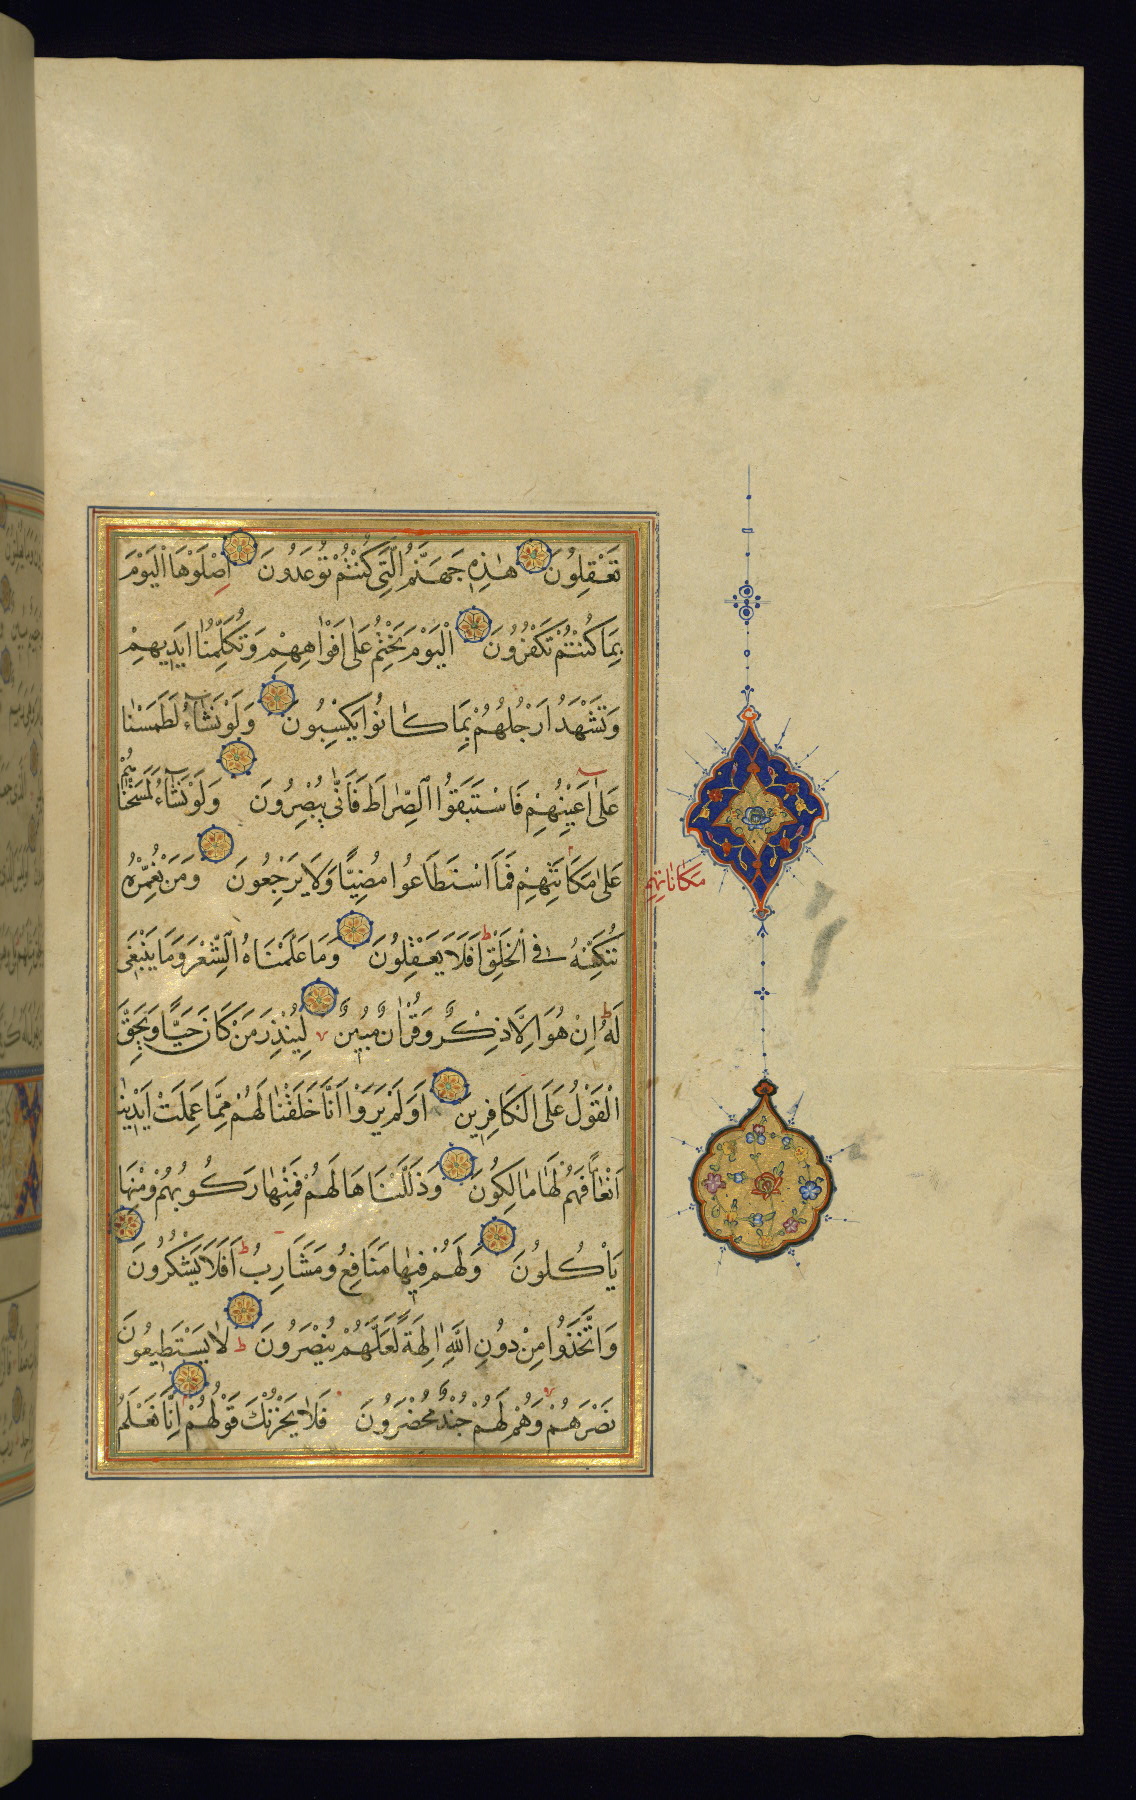 تَعْقِلُونَ هٰذِهِ جَهَنَّمُ الَّتِي كُنْتُمْ تُوعَدُونَ اِصْلَوْهَا الْيَوْمَ
بِمَا كُنْتُمْ تَكْفُرُونَ اَلْيَوْمَ نَخْتِمُ عَلٰى اَفْوَاهِهِمْ وَتُكَلِّمُنَا اَيْدِيهِمْ
وَتَشْهَدُ اَرْجُلُهُمْ بِمَا كَانُوا يَكْسِبُونَ وَلَوْ نَشَآءُ لَطَمَسْنَا
عَلٰى اَعْيُنِهِمْ فَاسْتَبَقُوا الصِّرَاطَ فَاَنّٰى يُبْصِرُونَ وَلَوْ نَشَآءُ لَمَسَخْنَاهُمْ
عَلٰى مَكَانَتِهِمْ فَمَا اسْتَطَاعُوا مُضِيًّا وَلَا يَرْجِعُونَ وَمَنْ نُعَمِّرْهُ
مَكَانَاتِهِمْ
نُنَكِّسْهُ فِي الْخَلْقِ ط اَفَلَا يَعْقِلُونَ وَمَا عَلَّمْنَاهُ الشِّعْرَ وَمَا يَنْبَغِي
لَهُ ط اِنْ هُوَ اِلَّا ذِكْرٌ وَقُرْاٰنٌ مُبِينٌ لِيُنْذِرَ مَنْ كَانَ حَيًّا وَيَحِقَّ
الْقَوْلُ عَلَى الْكَافِرِينَ اَوَلَمْ يَرَوْا اَنَّا خَلَقْنَا لَهُمْ مِمَّا عَمِلَتْ اَيْدِينَا
اَنْعَامًا فَهُمْ لَهَا مَالِكُونَ وَذَلَّلْنَاهَا لَهُمْ فَمِنْهَا رَكُوبُهُمْ وَمِنْهَا
يَاْكُلُونَ وَلَهُمْ فِيهَا مَنَافِعُ وَمَشَارِبُ ط اَفَلَا يَشْكُرُونَ
وَاتَّخَذُوا مِنْ دُونِ اللّٰهِ اٰلِهَةً لَعَلَّهُمْ يُنْصَرُونَ ط لَا يَسْتَطِيعُونَ
نَصْرَهُمْ وَهُمْ لَهُمْ جُنْدٌ مُحْضَرُونَ فَلَا يَحْزُنْكَ قَوْلُهُمْ اِنَّا نَعْلَمُ